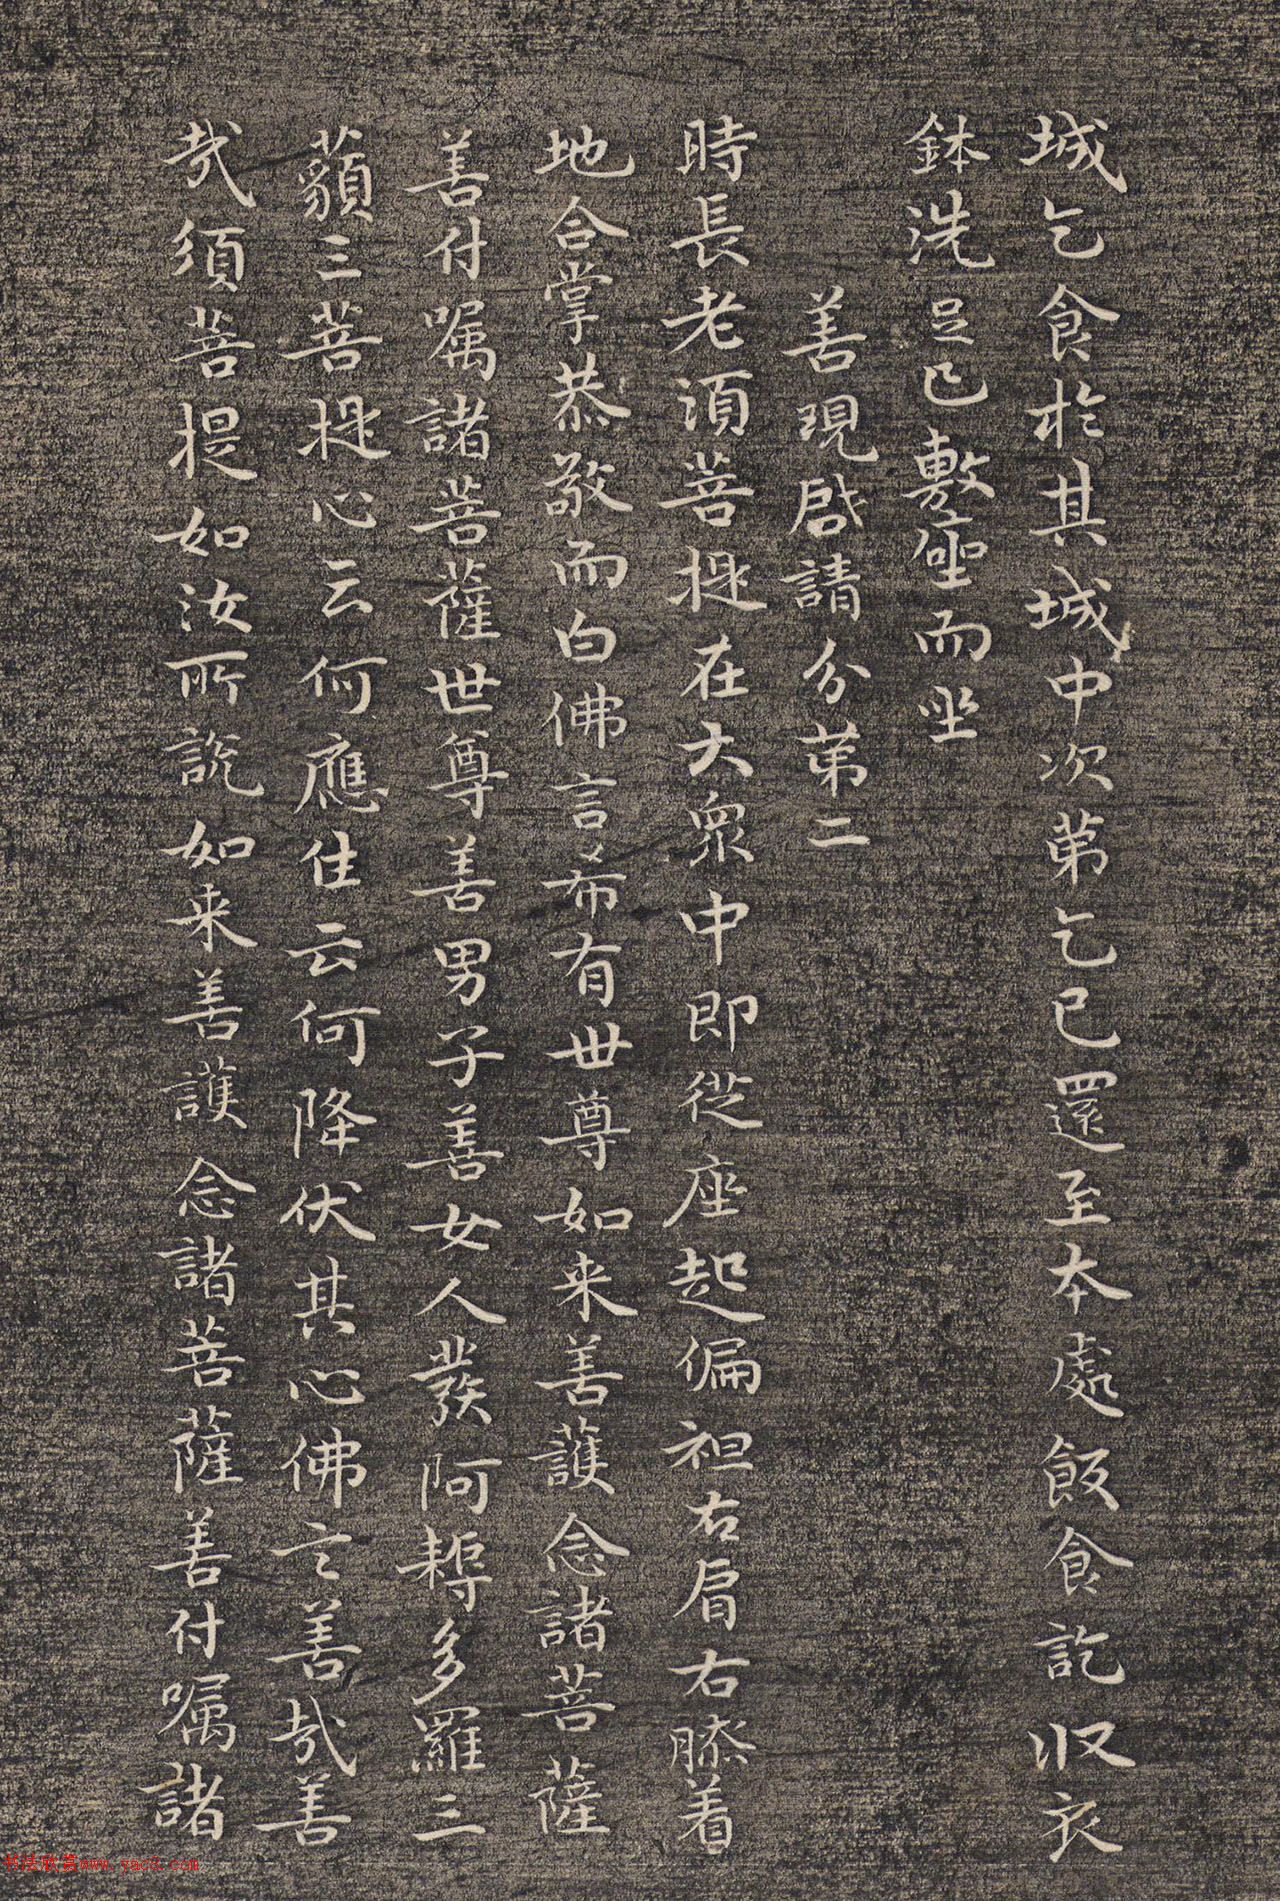 城乞食於其城中次第乞已還至本處飯食訖収衣
鉢洗足已敷座而坐
善現啟請分第二
時長老須菩提在大眾中即從座起偏袒右肩右膝着
地合掌恭敬而白佛言希有世尊如来善護念諸菩薩
善付嘱諸菩薩世尊善男子善女人發阿耨多羅三
藐三菩提心云何應住云何降伏其心佛言善哉善
哉須菩提如汝所說如来善護念諸菩薩善付嘱諸
书法欣赏www.yac8.com